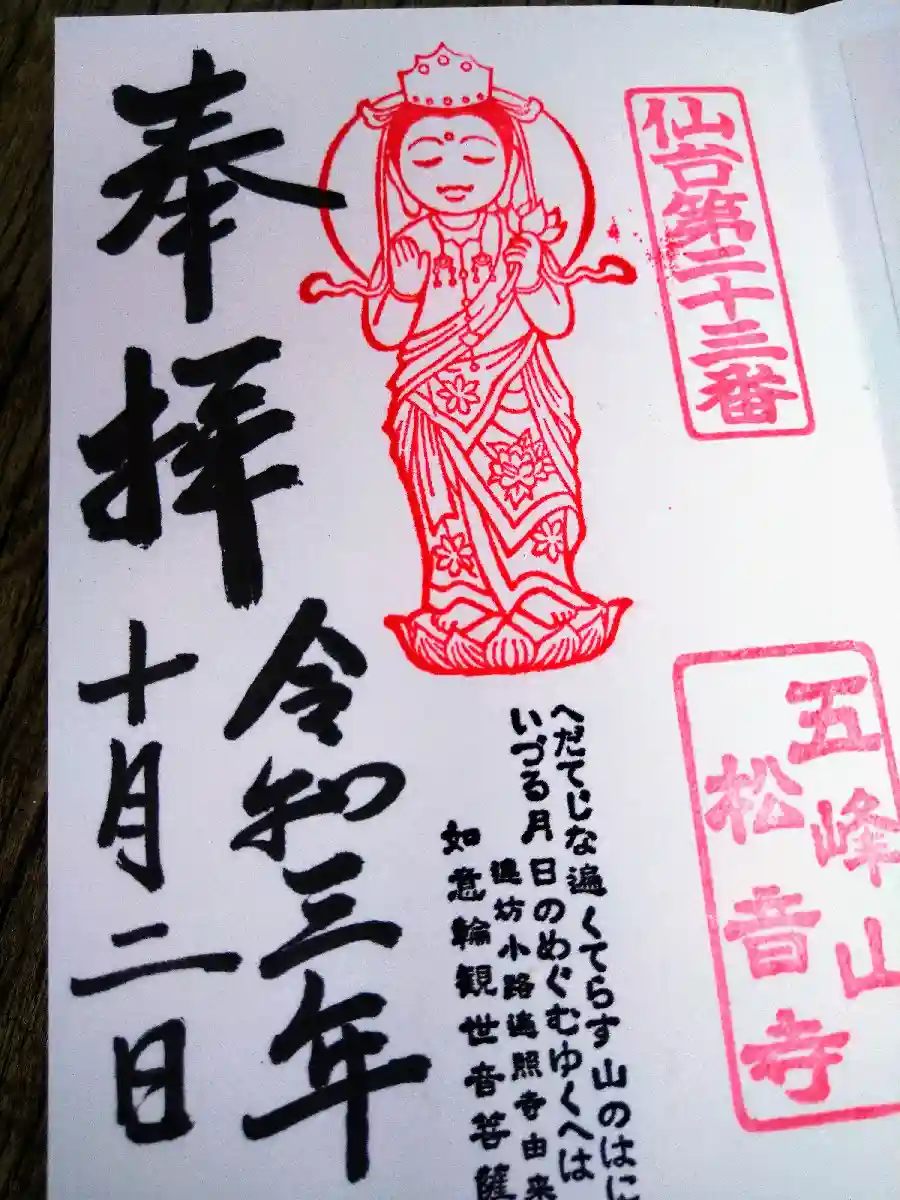 仙台第二十三番
五峰山
松音寺
へだてじな遍くてらす山のはに
いづる月日のめぐむゆくへは
連坊小路遍照寺由来
如意輪観世音菩薩
令和三年
奉拝 十月二日